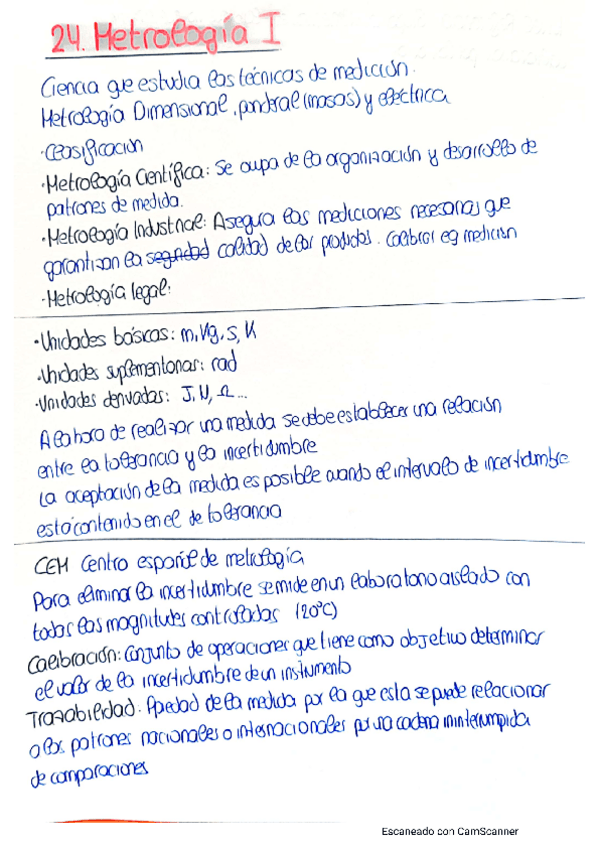 24. Metrología I
Ciencia que estudia las técnicas de medición.
Metrología Dimensional, ponderal (masas) y eléctrica
·Clasificación
·Metrología Científica: Se ocupa de la organización y desarrollo de
patrones de medida.
·Metrología Industrial: Asegura las mediciones necesarias que
garantizan la seguridad calidad de los productos. Calibrar eq medición
·Metrología legal:
·Unidades básicas: m, Kg, s, K
·Unidades suplementarias: rad
·Unidades derivadas: J, N, Ω...
A la hora de realizar una medida se debe establecer una relación
entre la tolerancia y la incertidumbre
La aceptación de la medida es posible cuando el intervalo de incertidumbre
está contenido en el de tolerancia
CEM Centro español de metrología
Para eliminar la incertidumbre se mide en un laboratorio aislado con
todas las magnitudes controladas (20ºC)
Calibración: Conjunto de operaciones que tiene como objetivo determinar
el valor de la incertidumbre de un instrumento
Trazabilidad: Propiedad de la medida por la que esta se puede relacionar
a los patrones nacionales o internacionales por una cadena ininterrumpida
de comparaciones
Escaneado con CamScanner